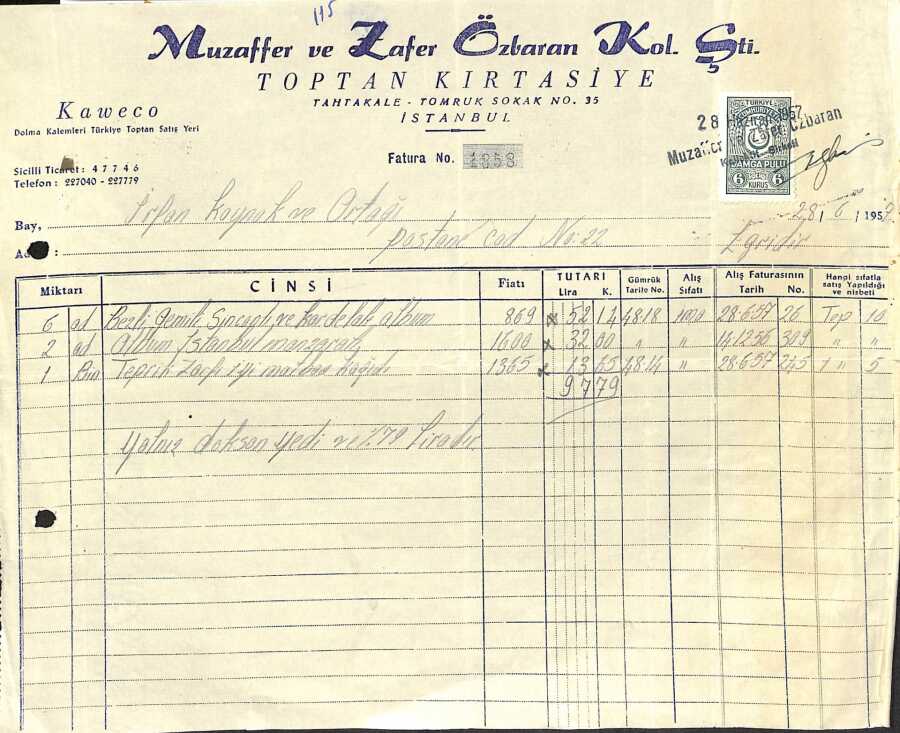 115
Muzaffer ve Zafer Özbaran Kol. Şti.
TOPTAN KIRTASİYE
TAHTAKALE - TOMRUK SOKAK NO. 35
İSTANBUL
Kaweco
Dolma Kalemleri Türkiye Toptan Satış Yeri
Sicilli Ticaret: 47746
Telefon: 227040 - 227779
Fatura No. 1858
TÜRKİYE
DAMGA PULU
6 KURUŞ 6
28 Haziran 1957
Muzaffer Zafer Özbaran
Bay, İrfan Kaynak ve Ortağı 28/6/195
postan cad No: 22 Egridir
Miktarı CİNSİ Fiatı TUTARI Lira K. Gümrük Tarife No. Alış Sıfatı Alış Faturasının Tarih No. Hangi sıfatla satış Yapıldığı ve nisbeti
6 ad Bezli Gemili ve albüm 869 52 14 48.18 28.6.57 26 Top 10
2 ad Albüm İstanbul manzaralı 1600 32 00 " " 14.12.56 309 " "
1 1365 13 65 48.14 " 28.6.57 245 " 5
97 79
Yalnız doksan yedi ve %79 Liradır